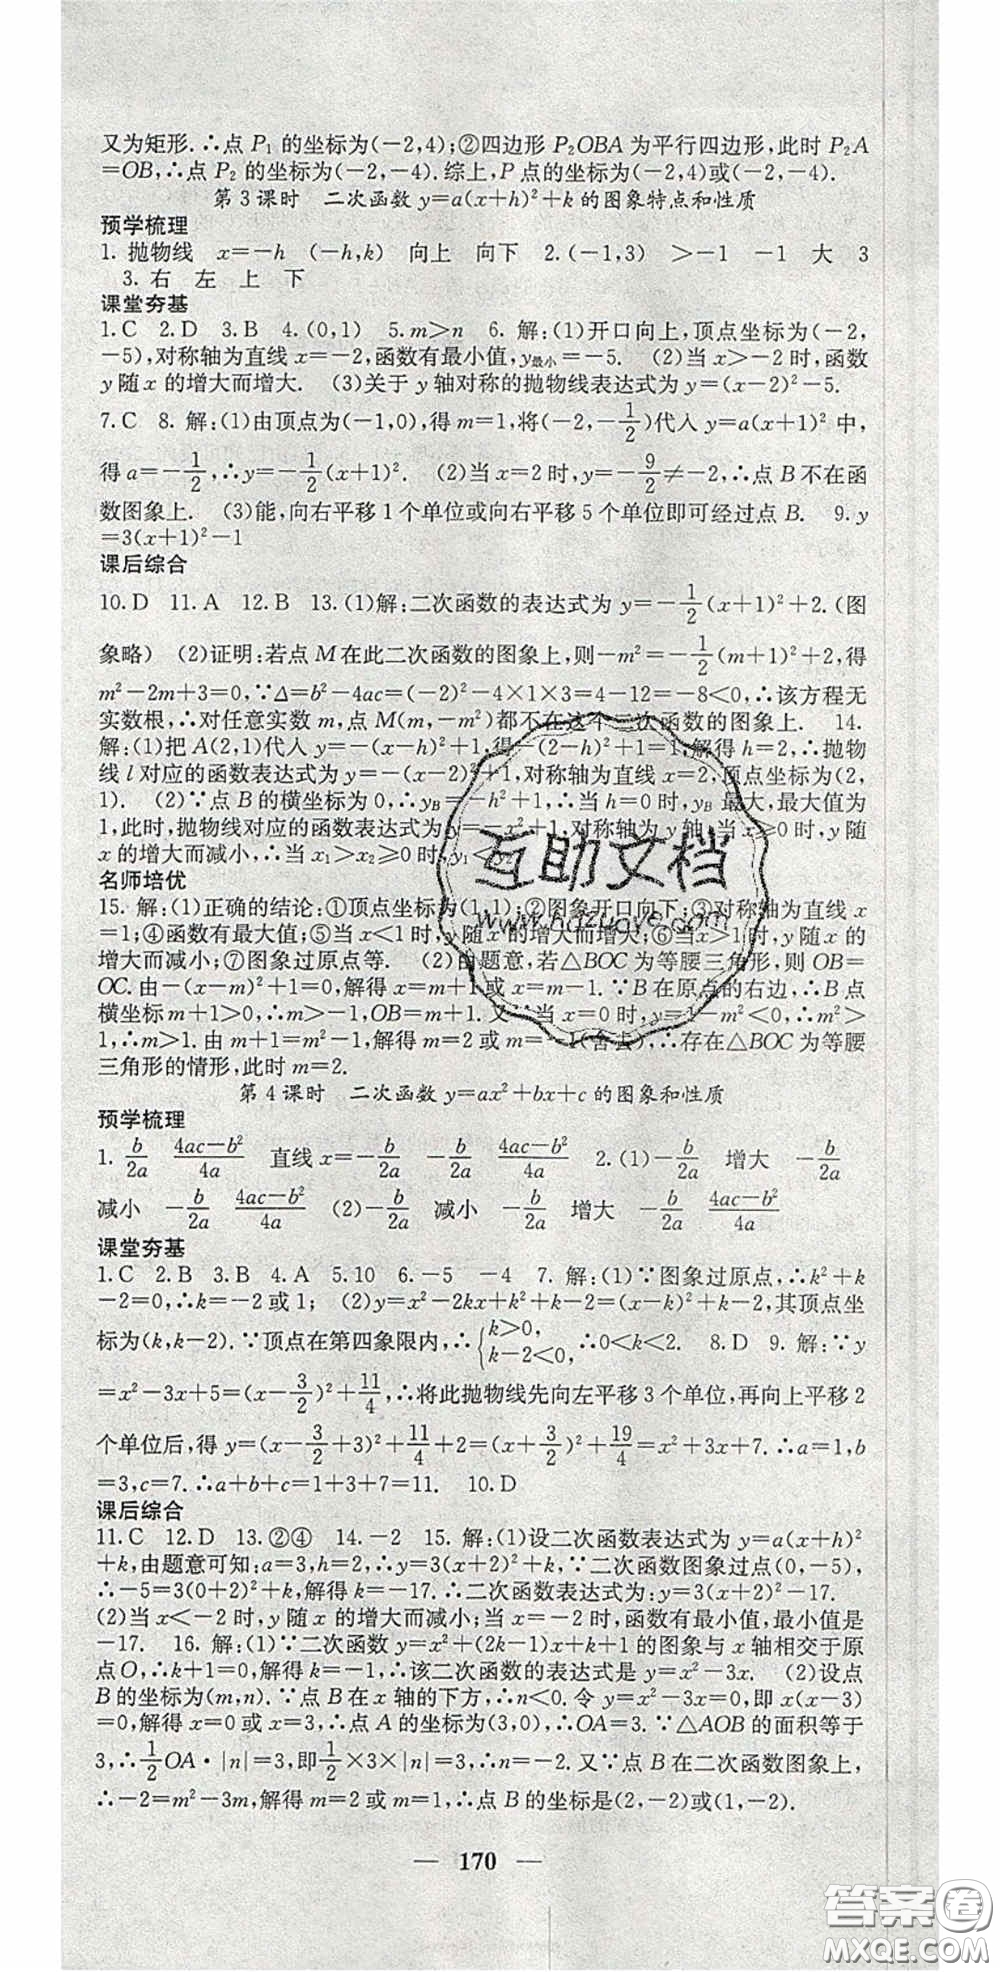 又为矩形.∴点 P₁ 的坐标为(－2,4);②四边形 P₂OBA 为平行四边形,此时 P₂A
＝OB,∴点 P₂ 的坐标为(－2,－4).综上,P 点的坐标为(－2,4)或(－2,－4).
第 3 课时　二次函数 y＝a(x＋h)²＋k 的图象特点和性质
预学梳理
1. 抛物线　x＝－h　(－h,k)　向上　向下　2.(－1,3)　＞－1　－1　大　3
3. 右　左　上　下
课堂夯基
1.C　2.D　3.B　4.(0,1)　5.m＞n　6. 解:(1)开口向上,顶点坐标为(－2,
－5),对称轴为直线 x＝－2,函数有最小值,y最小＝－5.　(2)当 x＞－2 时,函数
y 随 x 的增大而增大.　(3)关于 y 轴对称的抛物线表达式为 y＝(x－2)²－5.
7.C　8. 解:(1)由顶点为(－1,0),得 m＝1,将(－2,－1/2)代入 y＝a(x＋1)² 中,
得 a＝－1/2,∴y＝－1/2(x＋1)².　(2)当 x＝2 时,y＝－9/2≠－2,∴点 B 不在函
数图象上.　(3)能,向右平移 1 个单位或向右平移 5 个单位即可经过点 B.　9.y
＝3(x＋1)²－1
课后综合
10.D　11.A　12.B　13.(1)解:二次函数的表达式为 y＝－1/2(x＋1)²＋2.(图
象略)　(2)证明:若点 M 在此二次函数的图象上,则－m²＝－1/2(m＋1)²＋2,得
m²－2m＋3＝0,∵Δ＝b²－4ac＝(－2)²－4×1×3＝4－12＝－8＜0,∴该方程无
实数根,∴对任意实数 m,点 M(m,－m²)都不在这个二次函数的图象上.　14.
解:(1)把 A(2,1)代入 y＝－(x－h)²＋1,得－(2－h)²＋1＝1,解得 h＝2,∴抛物
线 l 对应的函数表达式为 y＝－(x－2)²＋1,对称轴为直线 x＝2,顶点坐标为(2,
1).　(2)∵点 B 的横坐标为 0,∴yB＝－h²＋1,∴当 h＝0 时,yB 最大,最大值为
1,此时,抛物线对应的函数表达式为 y＝－x²＋1,对称轴为 y 轴,当 x≥0 时,y 随
x 的增大而减小,∴当 x₁＞x₂≥0 时,y₁＜y₂.
名师培优
15. 解:(1)正确的结论:①顶点坐标为(1,1);②图象开口向下;③对称轴为直线 x
＝1;④函数有最大值;⑤当 x＜1 时,y 随 x 的增大而增大;⑥当 x＞1 时,y 随 x 的增
大而减小;⑦图象过原点等.　(2)由题意,若△BOC 为等腰三角形,则 OB＝
OC.由－(x－m)²＋1＝0,解得 x＝m＋1 或 x＝m－1.∵B 在原点的右边,∴B 点
横坐标 m＋1＞0,∴m＞－1,OB＝m＋1.又∵当 x＝0 时,y＝1－m²＜0,∴m²＞
1,∴m＞1.由 m＋1＝m²－1,解得 m＝2 或 m＝－1(舍去),∴存在△BOC 为等腰
三角形的情形,此时 m＝2.
第 4 课时　二次函数 y＝ax²＋bx＋c 的图象和性质
预学梳理
1.－b/2a　(4ac－b²)/4a　直线 x＝－b/2a　－b/2a　(4ac－b²)/4a　2.(1)－b/2a　增大　－b/2a
减小　－b/2a　(4ac－b²)/4a　(2)－b/2a　减小　－b/2a　增大　－b/2a　(4ac－b²)/4a
课堂夯基
1.C　2.B　3.B　4.A　5.10　6.－5　－4　7. 解:(1)∵图象过原点,∴k²＋k
－2＝0,∴k＝－2 或 1;　(2)y＝x²－2kx＋k²＋k－2＝(x－k)²＋k－2,其顶点坐
标为(k,k－2).∵顶点在第四象限内,∴{k＞0, k－2＜0, ∴0＜k＜2.　8.D　9. 解:∵y
＝x²－3x＋5＝(x－3/2)²＋11/4,∴将此抛物线先向左平移 3 个单位,再向上平移 2
个单位后,得 y＝(x－3/2＋3)²＋11/4＋2＝(x＋3/2)²＋19/4＝x²＋3x＋7.∴a＝1,b
＝3,c＝7.∴a＋b＋c＝1＋3＋7＝11.　10.D
课后综合
11.C　12.D　13.②④　14.－2　15. 解:(1)设二次函数表达式为 y＝a(x＋h)²
＋k,由题意可知:a＝3,h＝2,∴y＝3(x＋2)²＋k,∵二次函数图象过点(0,－5),
∴－5＝3(0＋2)²＋k,解得 k＝－17.∴二次函数表达式为:y＝3(x＋2)²－17.
(2)当 x＜－2 时,y 随 x 的增大而减小;当 x＝－2 时,函数有最小值,最小值是
－17.　16. 解:(1)∵二次函数 y＝x²＋(2k－1)x＋k＋1 的图象与 x 轴相交于原
点O,∴k＋1＝0,解得 k＝－1,∴该二次函数的表达式是 y＝x²－3x.　(2)设点
B 的坐标为(m,n).∵点 B 在 x 轴的下方,∴n＜0.令 y＝x²－3x＝0,即 x(x－3)
＝0,解得 x＝0 或 x＝3,∴点 A 的坐标为(3,0),∴OA＝3.∵△AOB 的面积等于
3,∴1/2OA·|n|＝3,即1/2×3×|n|＝3,∴n＝－2.又∵点 B 在二次函数图象上,
∴－2＝m²－3m,解得 m＝2 或 m＝1,∴点 B 的坐标是(2,－2)或(1,－2).
— 170 —
互助文档
www.hdzuoye.com
答案圈
MXQE.COM